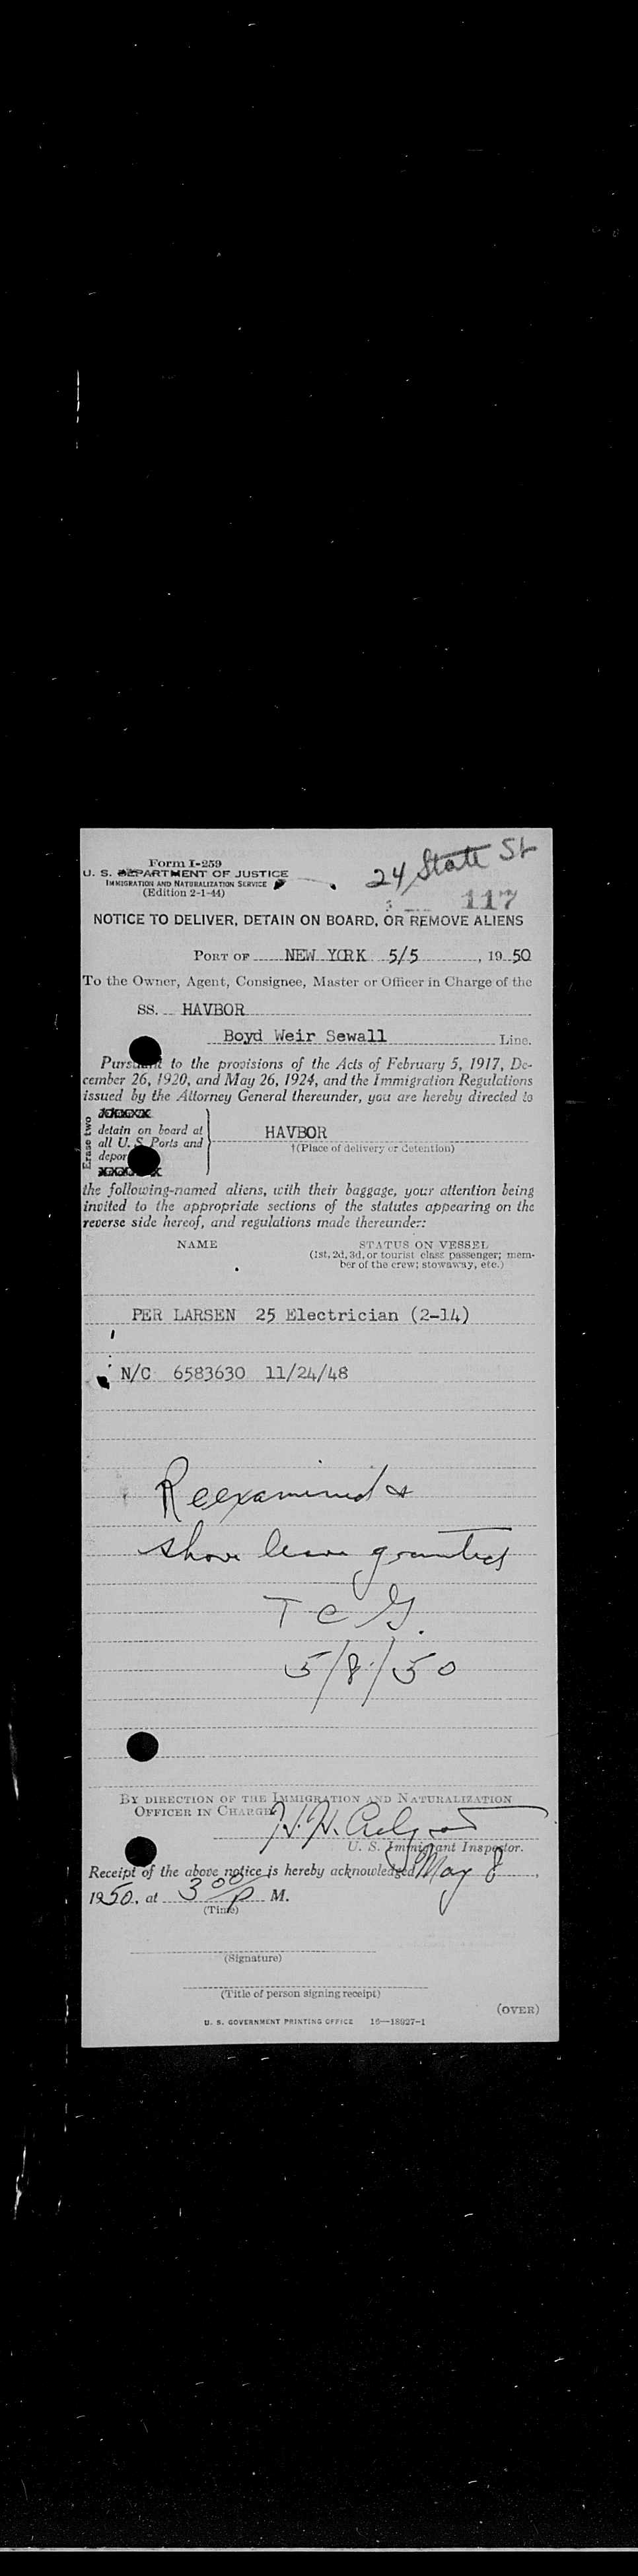 Form I-259
U. S. DEPARTMENT OF JUSTICE
IMMIGRATION AND NATURALIZATION SERVICE
(Edition 2-1-44)
24 State St
117
NOTICE TO DELIVER, DETAIN ON BOARD, OR REMOVE ALIENS
PORT OF NEW YORK 5/5, 1950
To the Owner, Agent, Consignee, Master or Officer in Charge of the
SS. HAVBOR
Boyd Weir Sewall Line.
Pursuant to the provisions of the Acts of February 5, 1917, De-
cember 26, 1920, and May 26, 1924, and the Immigration Regulations
issued by the Attorney General thereunder, you are hereby directed to
Erase two
detain on board at
all U. S. Ports and
depor
HAVBOR
†(Place of delivery or detention)
the following-named aliens, with their baggage, your attention being
invited to the appropriate sections of the statutes appearing on the
reverse side hereof, and regulations made thereunder:
NAME
STATUS ON VESSEL
(1st, 2d, 3d, or tourist class passenger; mem-
ber of the crew; stowaway, etc.)
PER LARSEN 25 Electrician (2-14)
N/C 6583630 11/24/48
Reexamined &
shore leave granted
T C G.
5/8/50
BY DIRECTION OF THE IMMIGRATION AND NATURALIZATION
OFFICER IN CHARGE
U. S. Immigrant Inspector.
Receipt of the above notice is hereby acknowledged May 8,
1950, at 3 00 P M.
(Time)
(Signature)
(Title of person signing receipt)
(OVER)
U. S. GOVERNMENT PRINTING OFFICE 16—18927-1